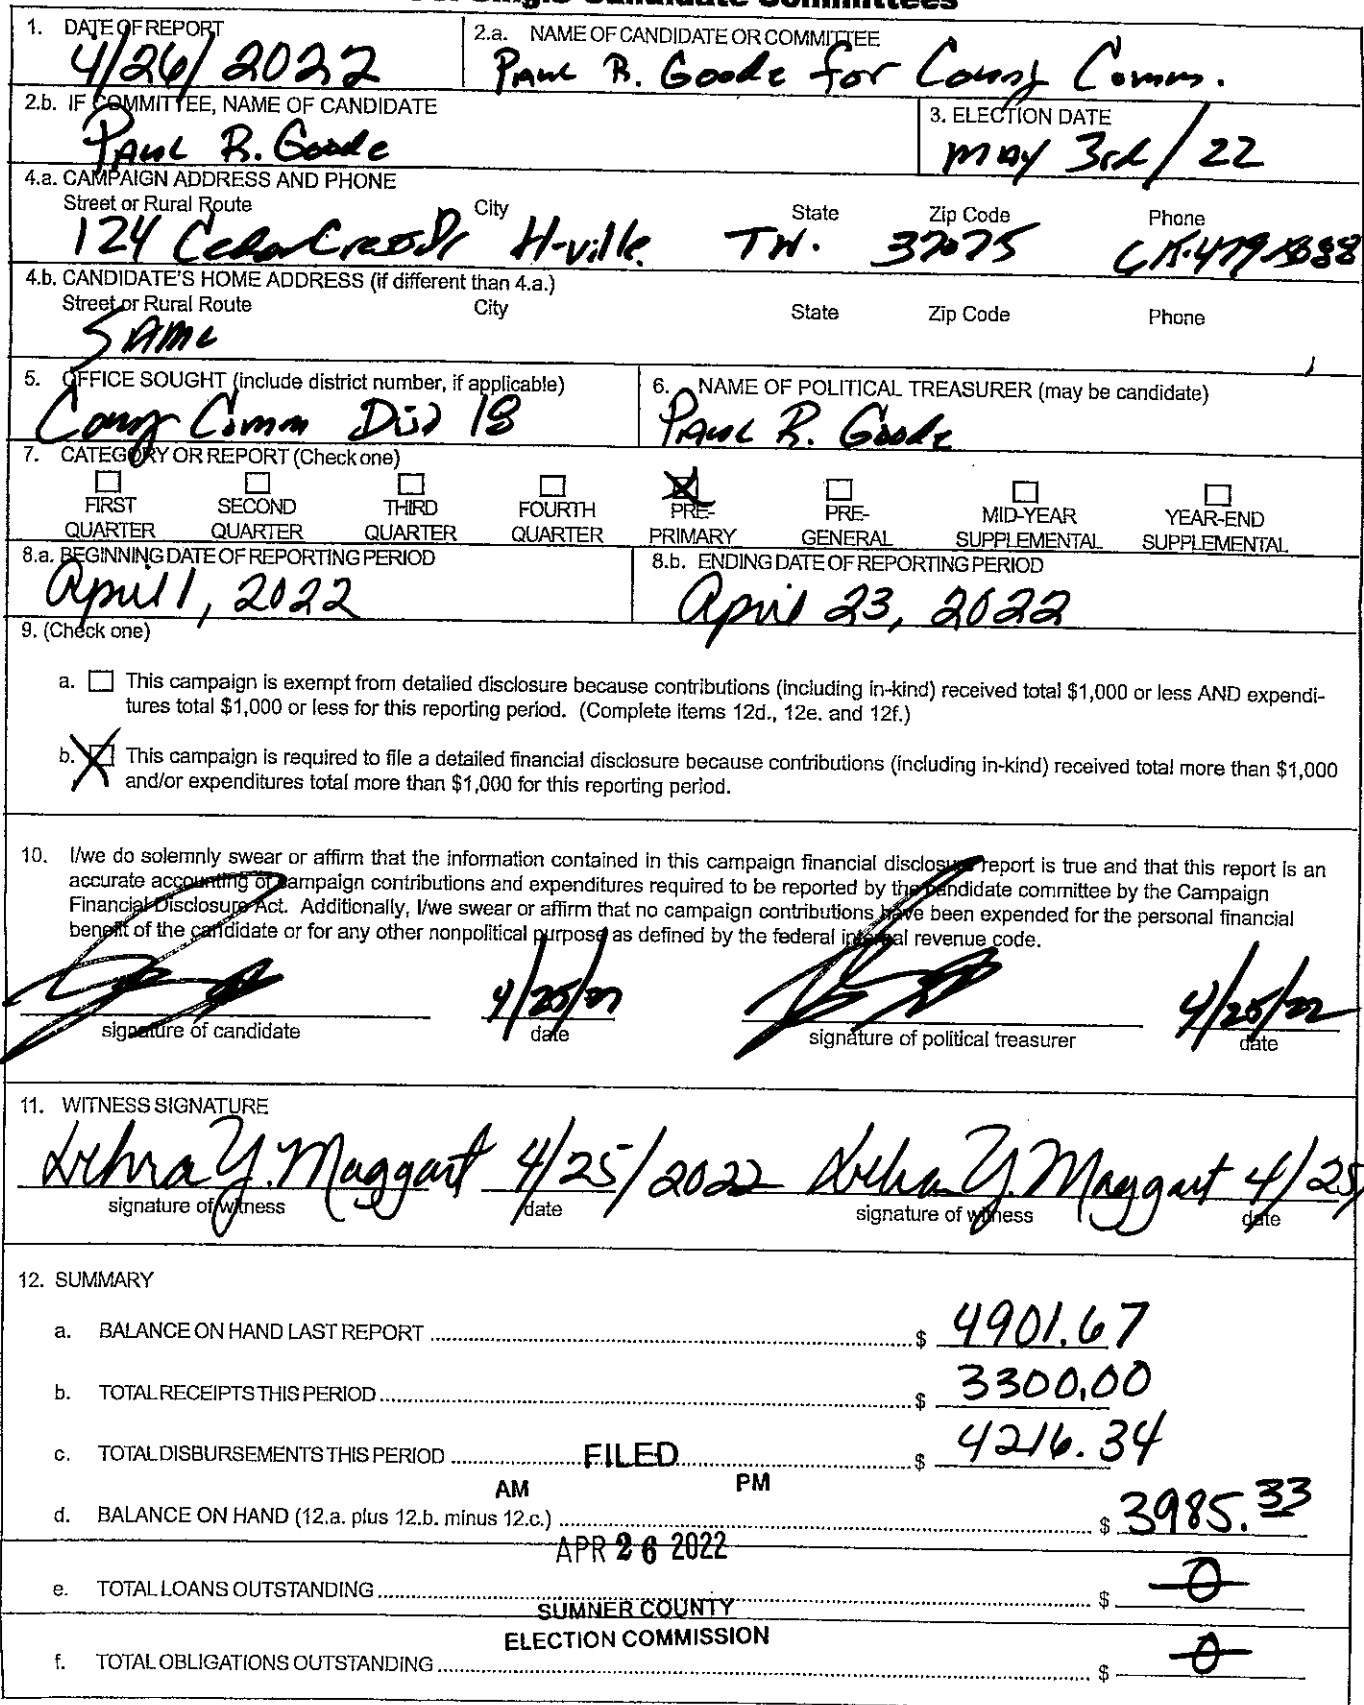 For Single Candidate Committees
1. DATE OF REPORT
4/26/2022
2.a. NAME OF CANDIDATE OR COMMITTEE
Paul R. Goode for County Comm.
2.b. IF COMMITTEE, NAME OF CANDIDATE
Paul R. Goode
3. ELECTION DATE
May 3rd/22
4.a. CAMPAIGN ADDRESS AND PHONE
Street or Rural Route City State Zip Code Phone
124 H-ville TN. 37075
4.b. CANDIDATE'S HOME ADDRESS (if different than 4.a.)
Street or Rural Route City State Zip Code Phone
Same
5. OFFICE SOUGHT (include district number, if applicable)
County Comm Dist 18
6. NAME OF POLITICAL TREASURER (may be candidate)
Paul R. Goode
7. CATEGORY OR REPORT (Check one)
FIRST QUARTER
SECOND QUARTER
THIRD QUARTER
FOURTH QUARTER
PRE-PRIMARY
PRE-GENERAL
MID-YEAR SUPPLEMENTAL
YEAR-END SUPPLEMENTAL
8.a. BEGINNING DATE OF REPORTING PERIOD
April 1, 2022
8.b. ENDING DATE OF REPORTING PERIOD
April 23, 2022
9. (Check one)
a. This campaign is exempt from detailed disclosure because contributions (including in-kind) received total $1,000 or less AND expendi-
tures total $1,000 or less for this reporting period. (Complete items 12d., 12e. and 12f.)
b. This campaign is required to file a detailed financial disclosure because contributions (including in-kind) received total more than $1,000
and/or expenditures total more than $1,000 for this reporting period.
10. I/we do solemnly swear or affirm that the information contained in this campaign financial disclosure report is true and that this report is an
accurate accounting of campaign contributions and expenditures required to be reported by the candidate committee by the Campaign
Financial Disclosure Act. Additionally, I/we swear or affirm that no campaign contributions have been expended for the personal financial
benefit of the candidate or for any other nonpolitical purpose as defined by the federal internal revenue code.
4/25/22 4/25/22
signature of candidate date signature of political treasurer date
11. WITNESS SIGNATURE
Debra Y. Maggart 4/25/2022 Debra Y. Maggart 4/25/
signature of witness date signature of witness date
12. SUMMARY
a. BALANCE ON HAND LAST REPORT $ 4901.67
b. TOTAL RECEIPTS THIS PERIOD $ 3300.00
c. TOTAL DISBURSEMENTS THIS PERIOD $ 4216.34
FILED
AM PM
d. BALANCE ON HAND (12.a. plus 12.b. minus 12.c.) $ 3985.33
APR 26 2022
e. TOTAL LOANS OUTSTANDING $ 0
SUMNER COUNTY
ELECTION COMMISSION
f. TOTAL OBLIGATIONS OUTSTANDING $ 0